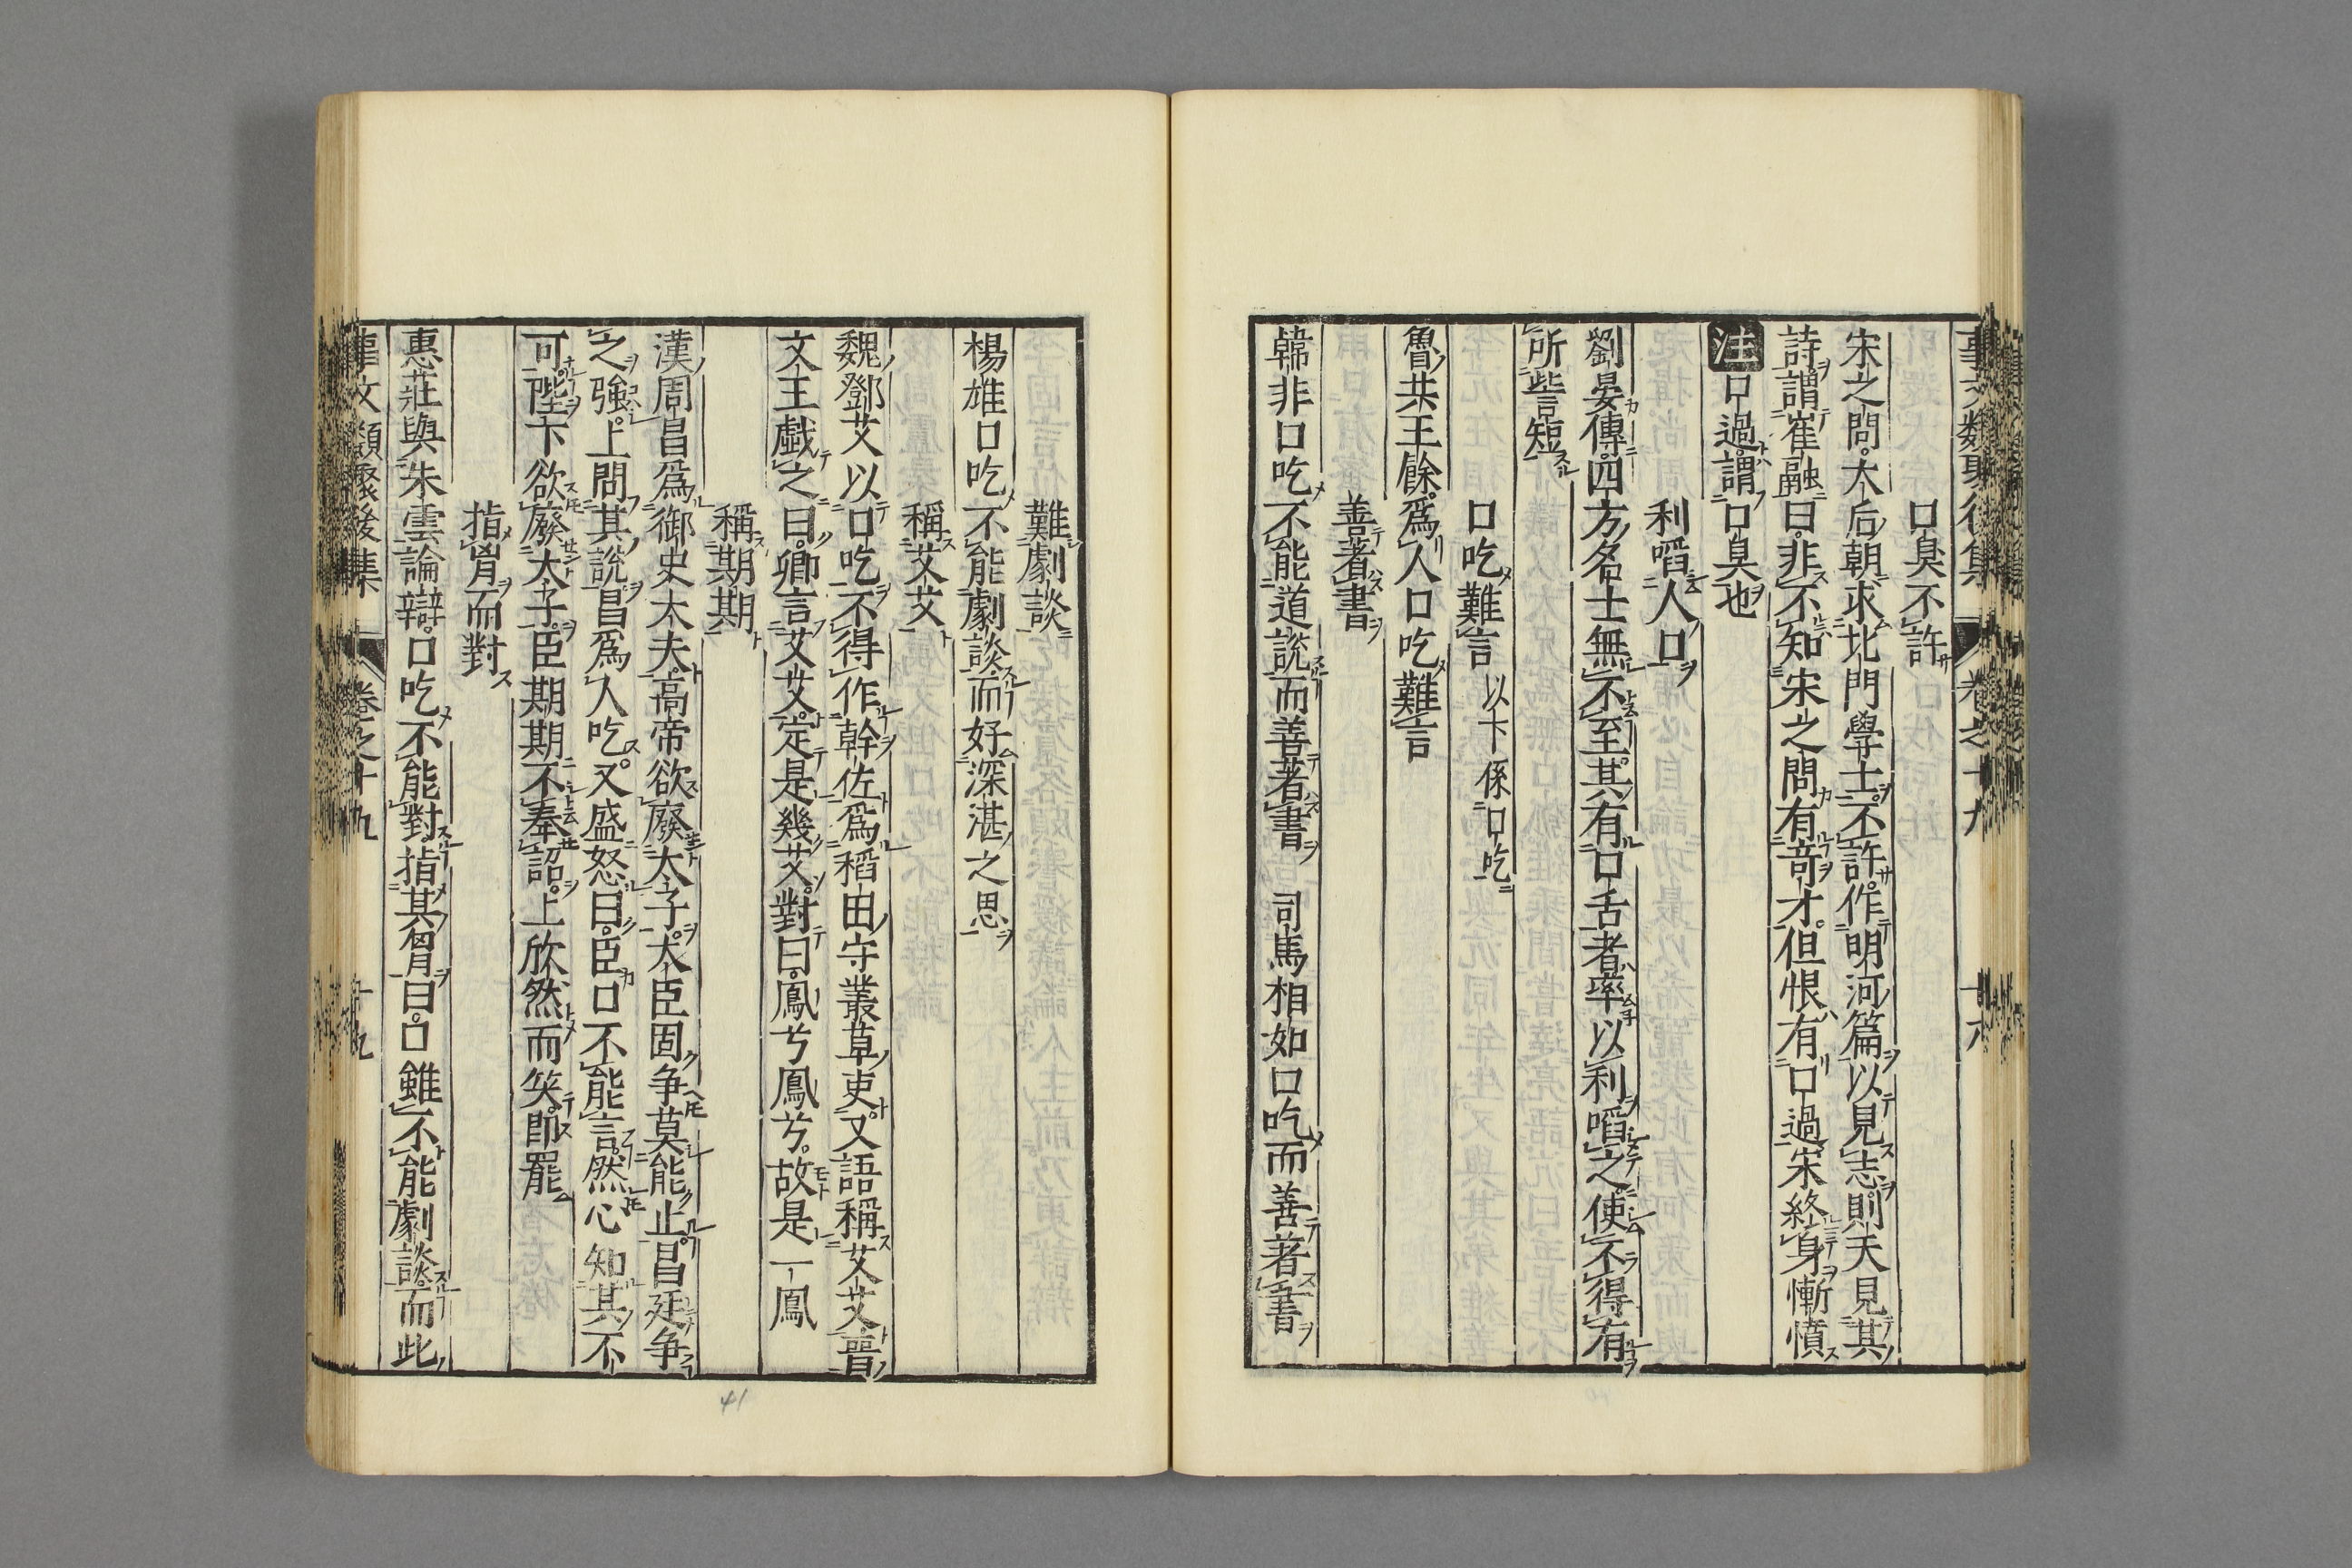 事文類聚後集 卷之十九 十八
口臭不許
宋之問太后朝求北門學士不許作明河篇以見志則天見其
詩謂崔融曰非不知宋之問有奇才但恨有口過宋終身慚憤
注口過謂口臭也
利啗人口
劉晏傳四方名士無不至其有口舌者率以利啗之使不得有
所訾短
口吃難言 以下係口吃
魯共王餘爲人口吃難言
善著書
韓非口吃不能道說而善著書 司馬相如口吃而善著書
難劇談
楊雄口吃不能劇談而好深湛之思
稱艾艾
魏鄧艾以口吃不得作幹佐爲稻田守叢草吏又語稱艾艾晉
文王戲之曰卿言艾艾定是幾艾對曰鳳兮鳳兮故是一鳳
稱期期
漢周昌爲御史大夫高帝欲廢太子大臣固争莫能止昌廷争
之強上問其說昌爲人吃又盛怒曰臣口不能言然心知其不
可陛下欲廢太子臣期期不奉詔上欣然而笑即罷
指胷而對
惠莊與朱雲論辯口吃不能對指其胷曰口雖不能劇談而此
事文類聚後集 卷之十九 十九
41